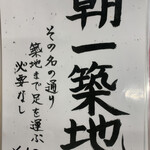 朝一築地
その名の通り
築地まで足を運ぶ
必要なし